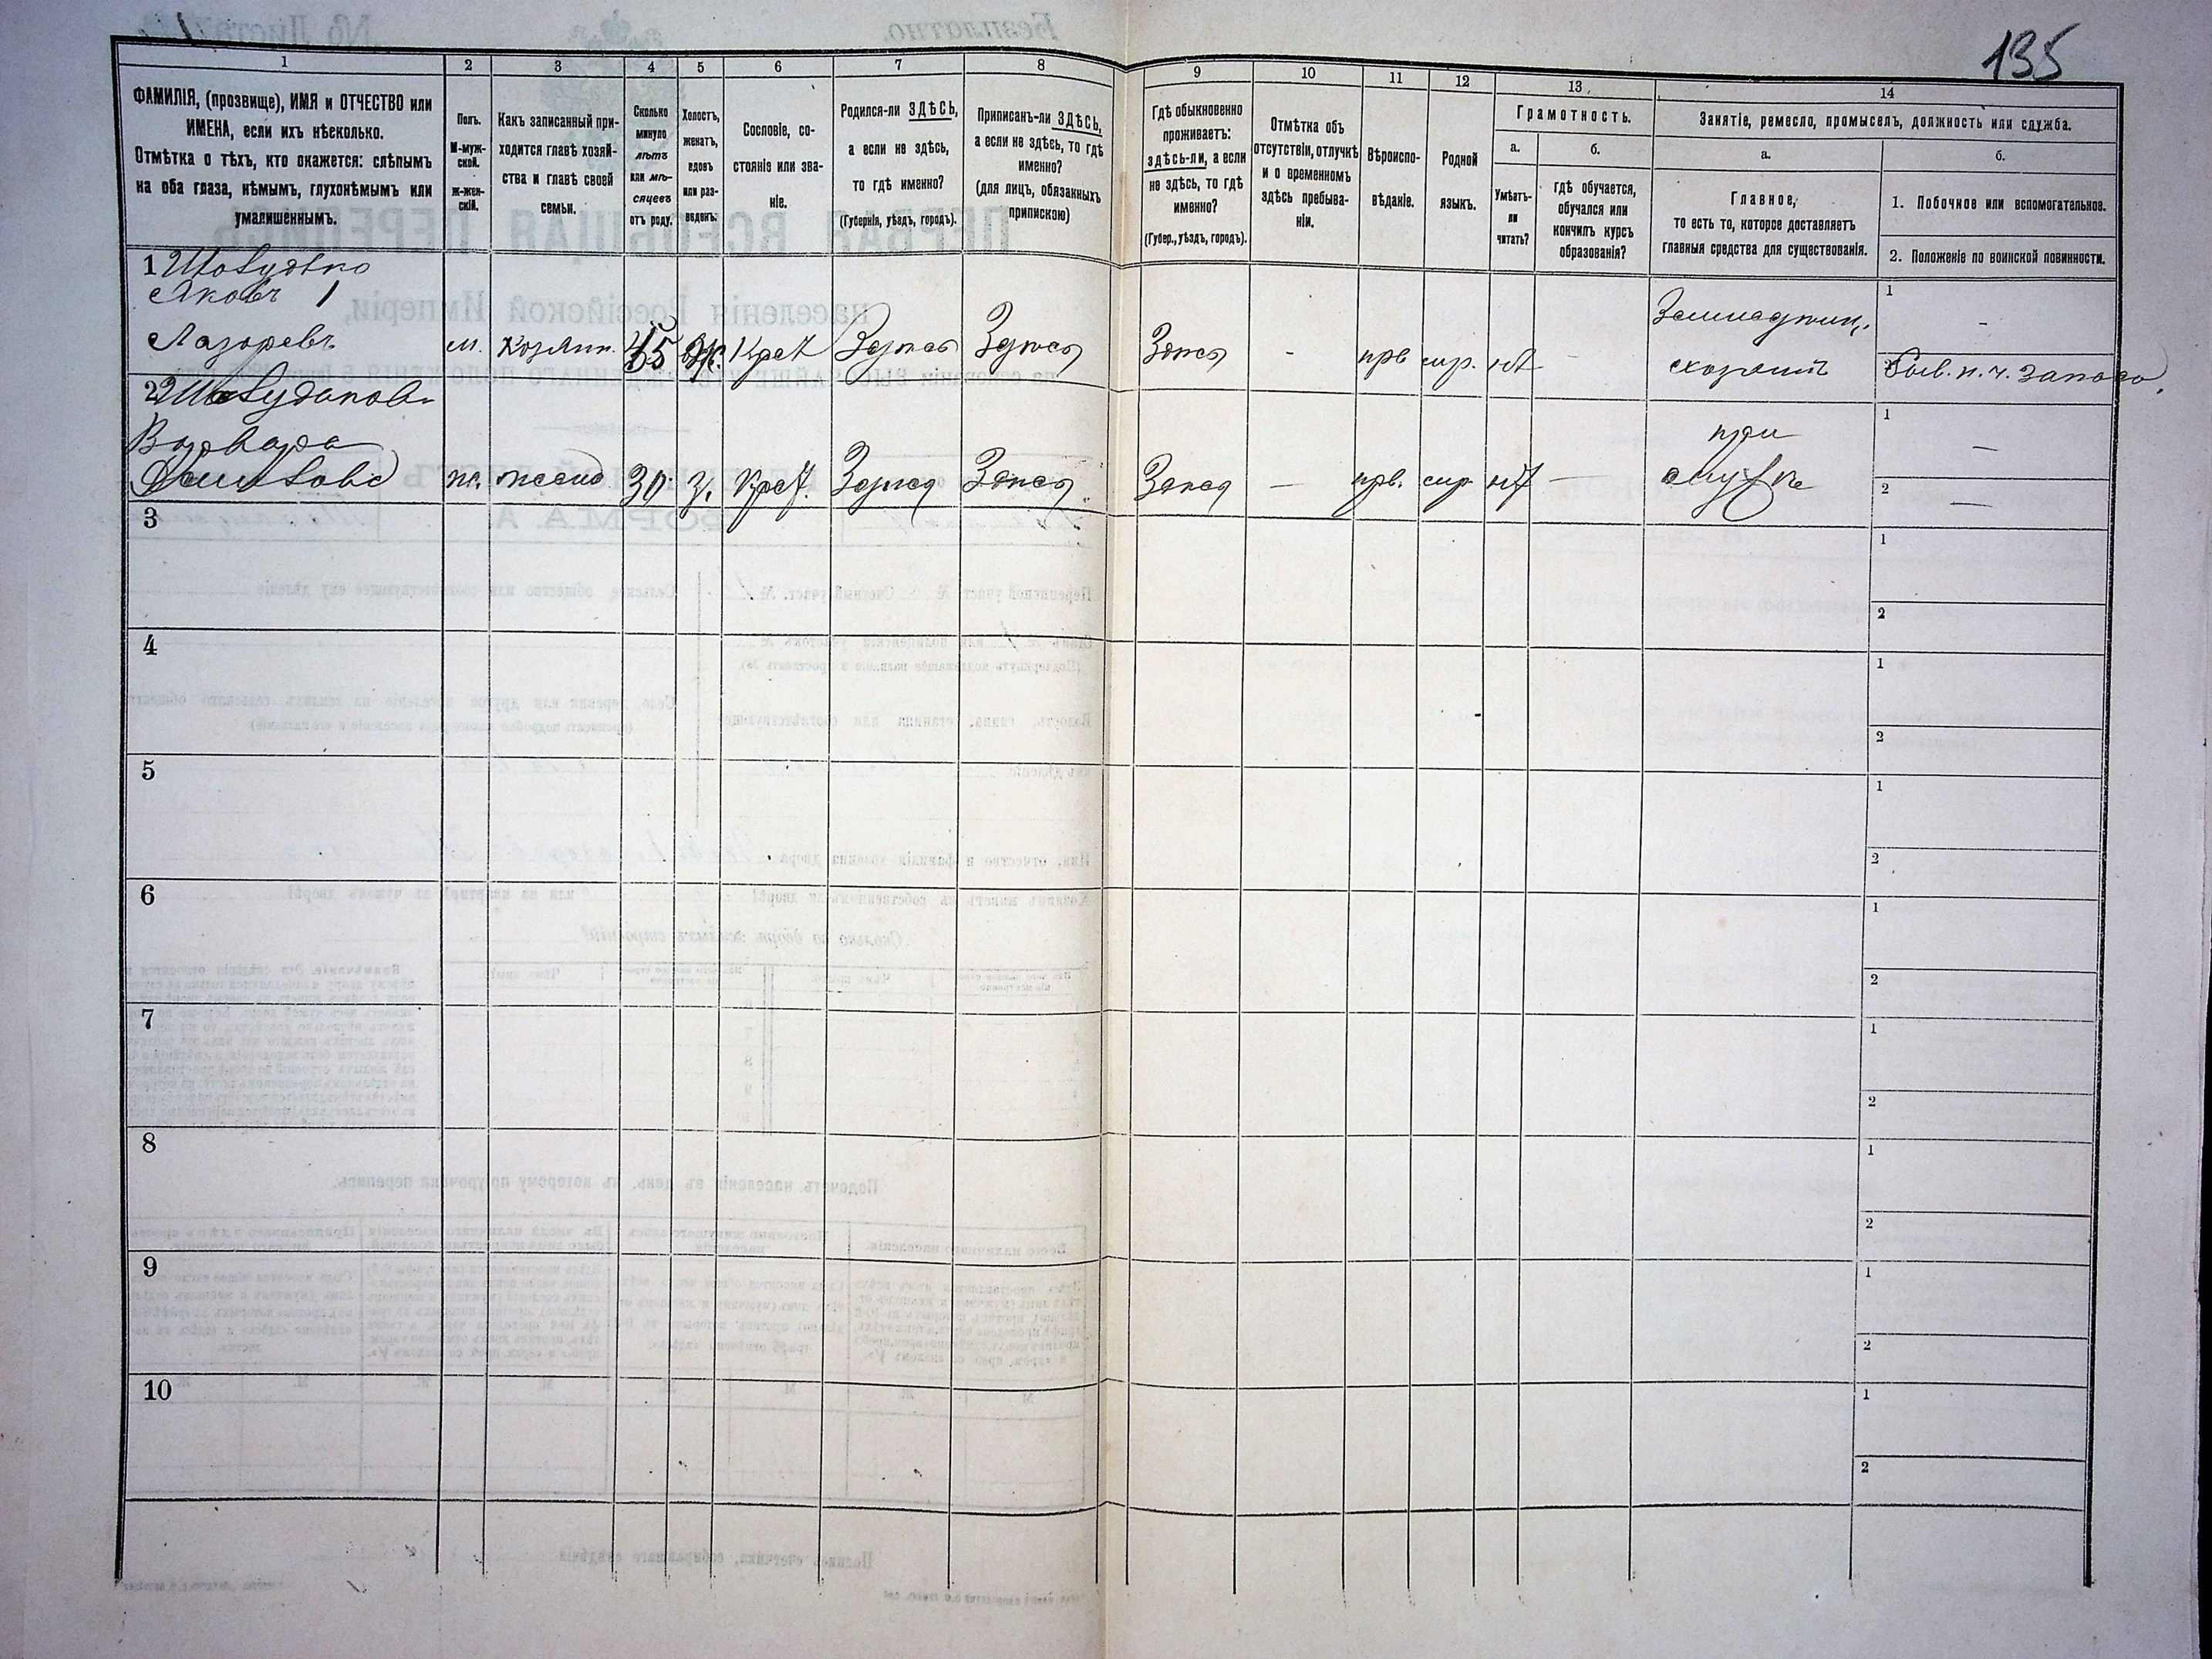 135
1 2 3 4 5 6 7 8 9 10 11 12 13 14
ФАМИЛІЯ, (прозвище), ИМЯ и ОТЧЕСТВО или
ИМЕНА, если ихъ нѣсколько.
Отмѣтка о тѣхъ, кто окажется: слѣпымъ
на оба глаза, нѣмымъ, глухонѣмымъ или
умалишеннымъ.
Полъ.
М-муж-
ской.
ж-жен-
скій.
Какъ записанный при-
ходится главѣ хозяй-
ства и главѣ своей
семьи.
Сколько
минуло
лѣтъ
или мѣ-
сяцевъ
отъ роду.
Холостъ,
женатъ,
вдовъ
или раз-
веденъ.
Сословіе, со-
стояніе или зва-
ніе.
Родился-ли ЗДѢСЬ,
а если не здѣсь,
то гдѣ именно?
(Губернія, уѣздъ, городъ).
Приписанъ-ли ЗДѢСЬ,
а если не здѣсь, то гдѣ
именно?
(для лицъ, обязанныхъ
припискою)
Гдѣ обыкновенно
проживаетъ:
здѣсь-ли, а если
не здѣсь, то гдѣ
именно?
(Губер., уѣздъ, городъ).
Отмѣтка объ
отсутствіи, отлучкѣ
и о временномъ
здѣсь пребыва-
ніи.
Вѣроиспо-
вѣданіе.
Родной
языкъ.
Грамотность.
а.
Умѣетъ-
ли
читать?
б.
гдѣ обучается,
обучался или
кончилъ курсъ
образованія?
Занятіе, ремесло, промыселъ, должность или служба.
а.
Главное,
то есть то, которое доставляетъ
главныя средства для существованія.
б.
1. Побочное или вспомогательное.
2. Положеніе по воинской повинности.
1
Яковъ 1
Лазоревъ м. хозяин. 45 Ж. Крест Здѣсь Здѣсь Здѣсь - прв нѣт - 1 -
2 запаса
2
Варвара
ж. жена 30 З. Крест. Здѣсь Здѣсь Здѣсь — прв. нѣт — при 1 —
2 —
3 1
2
4 1
2
5 1
2
6 1
2
7 1
2
8 1
2
9 1
2
10 1
2